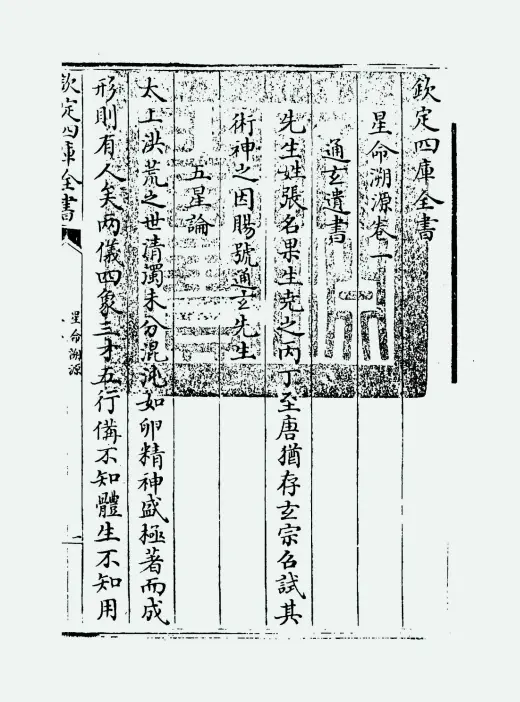 欽定四庫全書
星命溯源卷一
通玄遺書
先生姓張名果生堯之丙丁至唐猶存玄宗召試其
術神之因賜號通玄先生
五星論
太上洪荒之世清濁未分混沌如卵精神盛極著而成
形則有人矣兩儀四象三才五行備不知體生不知用
欽定四庫全書
星命溯源
一